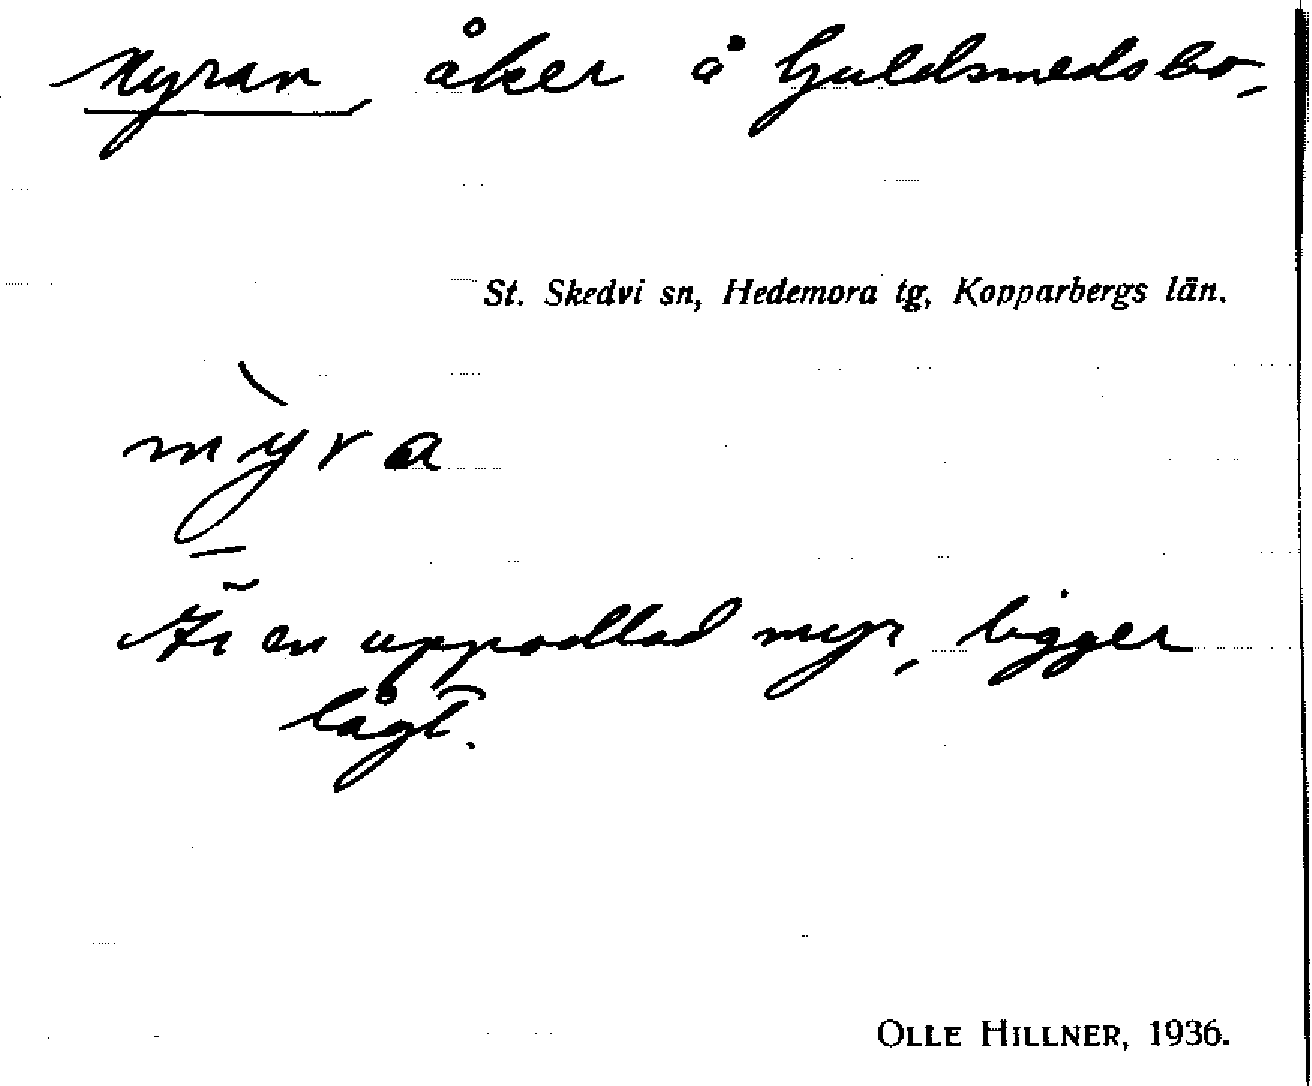 Myran, åker å Guldsmedsbo,
St. Skedvi sn, Hedemora tg, Kopparbergs län.
mỳra
Är en uppodlad myr, ligger
lågt.
OLLE HILLNER, 1936.